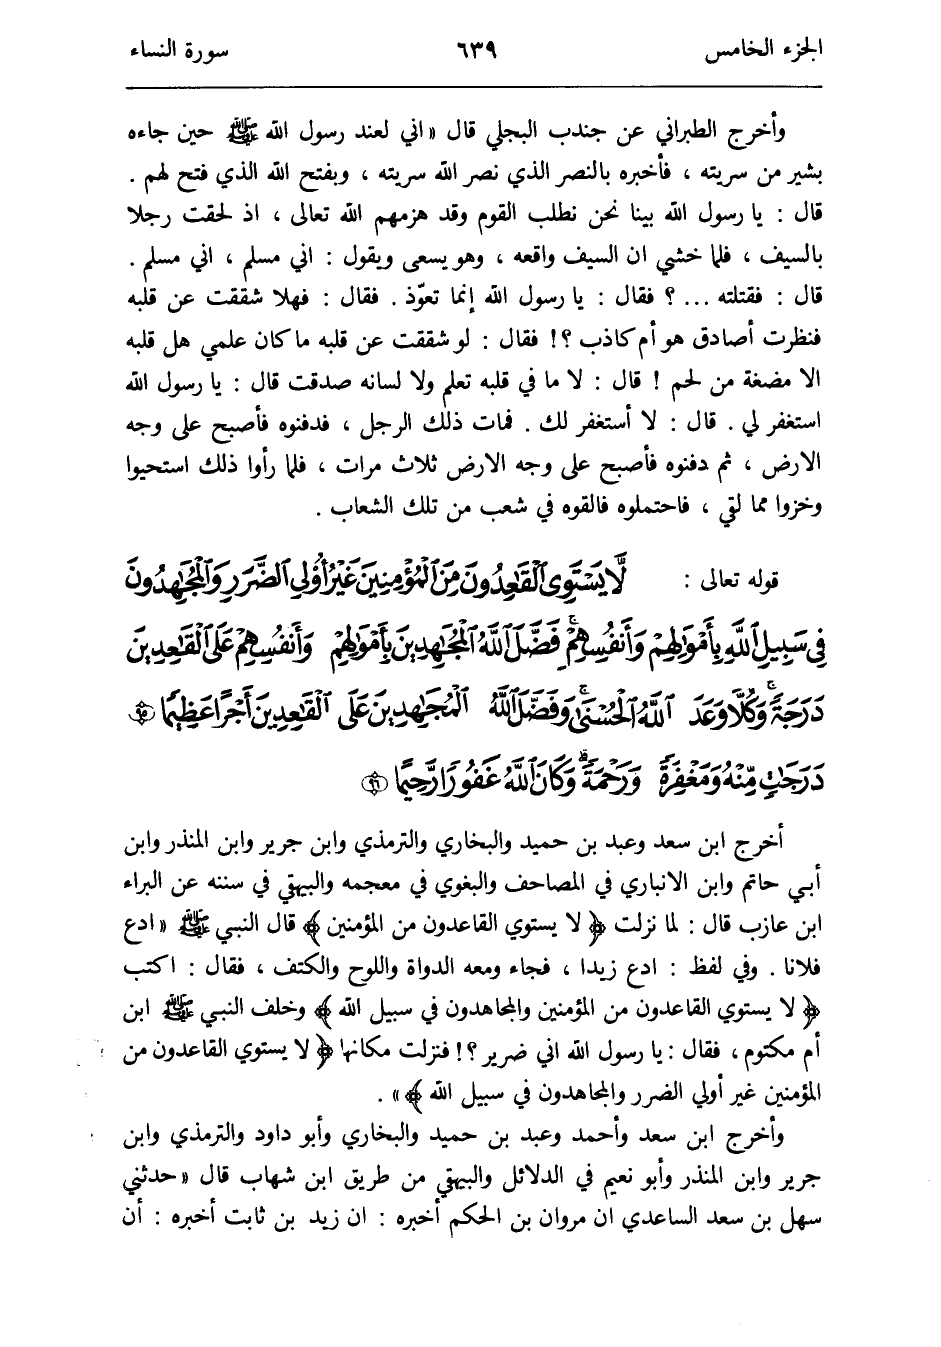 الجزء الخامس ٦٣٩ سورة النساء
وأخرج الطبراني عن جندب البجلي قال « اني لعند رسول الله ﷺ حين جاءه
بشير من سريته ، فأخبره بالنصر الذي نصر الله سريته ، وبفتح الله الذي فتح لهم .
قال : يا رسول الله بينا نحن نطلب القوم وقد هزمهم الله تعالى ، اذ لحقت رجلا
بالسيف ، فلما خشي ان السيف واقعه ، وهو يسعى ويقول : اني مسلم ، اني مسلم .
قال : فقتلته ... ؟ فقال : يا رسول الله إنما تعوّذ . فقال : فهلا شققت عن قلبه
فنظرت أصادق هو أم كاذب ؟! فقال : لو شققت عن قلبه ما كان علمي هل قلبه
الا مضغة من لحم ! قال : لا ما في قلبه تعلم ولا لسانه صدقت قال : يا رسول الله
استغفر لي . قال : لا أستغفر لك . فمات ذلك الرجل ، فدفنوه فأصبح على وجه
الارض ، ثم دفنوه فأصبح على وجه الارض ثلاث مرات ، فلما رأوا ذلك استحيوا
وخزوا مما لقي ، فاحتملوه فالقوه في شعب من تلك الشعاب .
قوله تعالى : لَّا يَسْتَوِى ٱلْقَٰعِدُونَ مِنَ ٱلْمُؤْمِنِينَ غَيْرُ أُو۟لِى ٱلضَّرَرِ وَٱلْمُجَٰهِدُونَ
فِى سَبِيلِ ٱللَّهِ بِأَمْوَٰلِهِمْ وَأَنفُسِهِمْ ۚ فَضَّلَ ٱللَّهُ ٱلْمُجَٰهِدِينَ بِأَمْوَٰلِهِمْ وَأَنفُسِهِمْ عَلَى ٱلْقَٰعِدِينَ
دَرَجَةً ۚ وَكُلًّا وَعَدَ ٱللَّهُ ٱلْحُسْنَىٰ ۚ وَفَضَّلَ ٱللَّهُ ٱلْمُجَٰهِدِينَ عَلَى ٱلْقَٰعِدِينَ أَجْرًا عَظِيمًا ٩٥
دَرَجَٰتٍ مِّنْهُ وَمَغْفِرَةً وَرَحْمَةً ۚ وَكَانَ ٱللَّهُ غَفُورًا رَّحِيمًا ٩٦
أخرج ابن سعد وعبد بن حميد والبخاري والترمذي وابن جرير وابن المنذر وابن
أبي حاتم وابن الانباري في المصاحف والبغوي في معجمه والبيهقي في سننه عن البراء
ابن عازب قال : لما نزلت ﴿ لا يستوي القاعدون من المؤمنين ﴾ قال النبي ﷺ « ادع
فلانا . وفي لفظ : ادع زيدا ، فجاء ومعه الدواة واللوح والكتف ، فقال : اكتب
﴿ لا يستوي القاعدون من المؤمنين والمجاهدون في سبيل الله ﴾ وخلف النبي ﷺ ابن
أم مكتوم ، فقال : يا رسول الله اني ضرير ؟! فنزلت مكانها ﴿ لا يستوي القاعدون من
المؤمنين غير أولي الضرر والمجاهدون في سبيل الله ﴾ » .
وأخرج ابن سعد وأحمد وعبد بن حميد والبخاري وأبو داود والترمذي وابن
جرير وابن المنذر وأبو نعيم في الدلائل والبيهقي من طريق ابن شهاب قال « حدثني
سهل بن سعد الساعدي ان مروان بن الحكم أخبره : ان زيد بن ثابت أخبره : أن